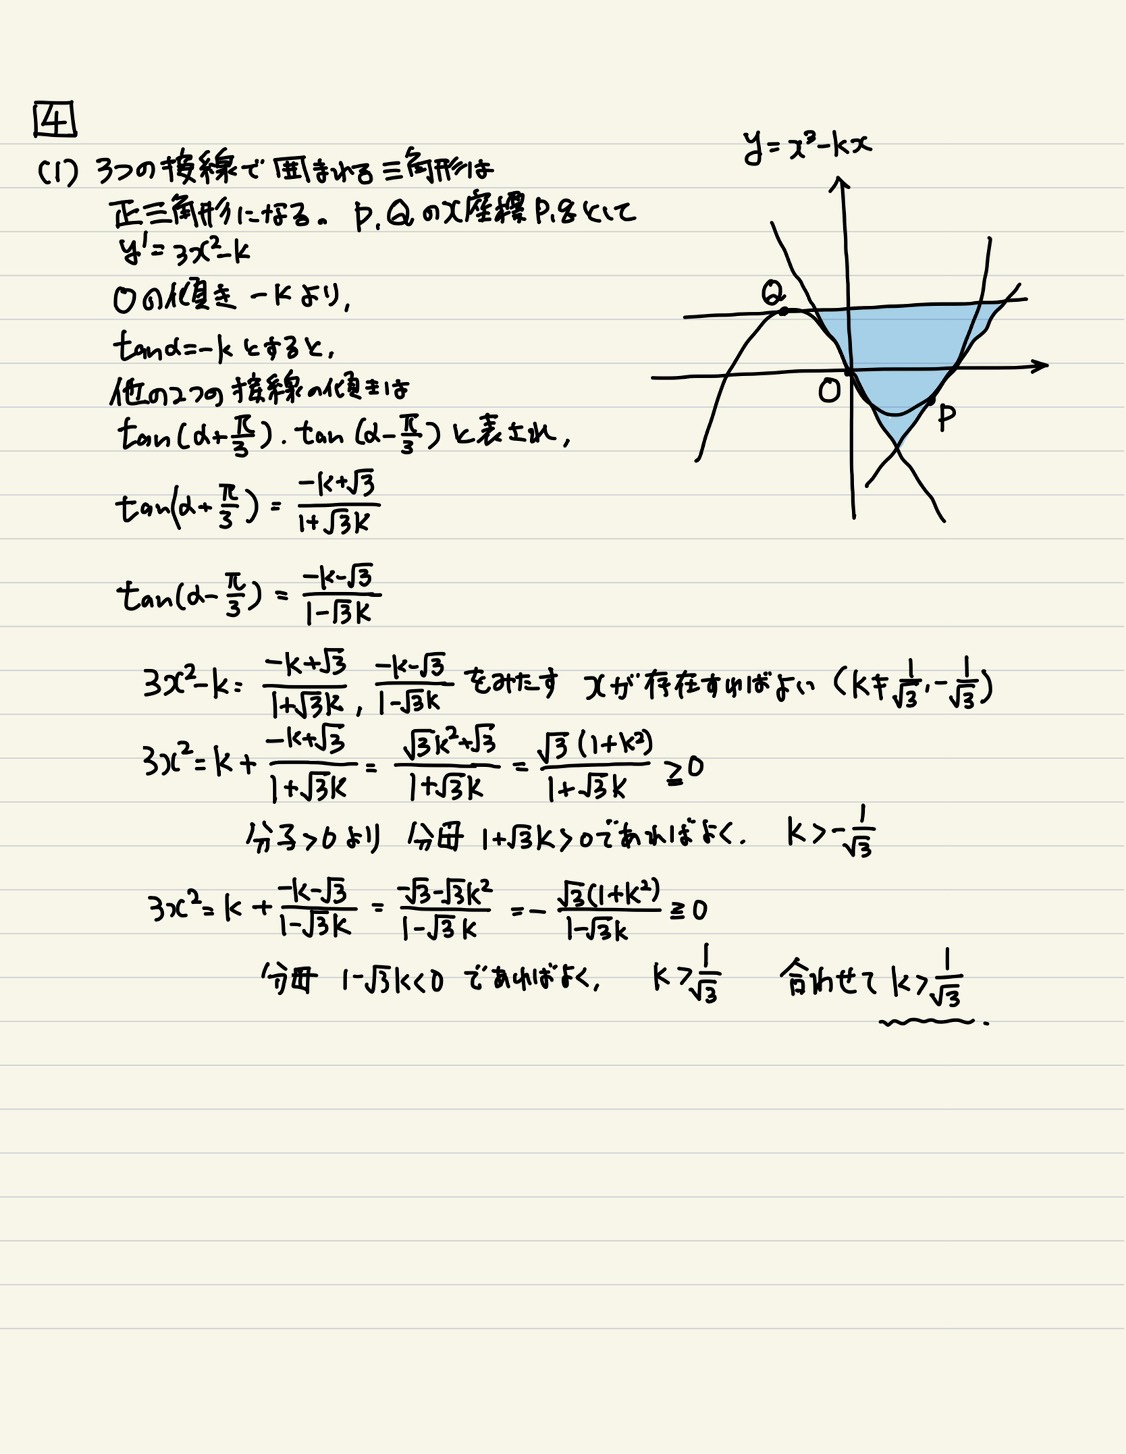 4
y=x³-kx
(1) 3つの接線で囲まれる三角形は
正三角形になる。P,Qのx座標p,qとして
y'=3x²-k
Oの傾き -kより,
tanα=-kとすると,
他の2つの接線の傾きは
tan(α+π/3), tan(α-π/3)と表され,
tan(α+π/3) = (-k+√3)/(1+√3k)
tan(α-π/3) = (-k-√3)/(1-√3k)
3x²-k = (-k+√3)/(1+√3k), (-k-√3)/(1-√3k) をみたす xが存在すればよい (k≠1/√3, -1/√3)
3x²=k+(-k+√3)/(1+√3k) = (√3k²+√3)/(1+√3k) = √3(1+k²)/(1+√3k) ≧0
分子>0より 分母 1+√3k>0であればよく. k>-1/√3
3x²=k+(-k-√3)/(1-√3k) = (-√3-√3k²)/(1-√3k) = -√3(1+k²)/(1-√3k) ≧0
分母 1-√3k<0 であればよく, k>1/√3 合わせて k>1/√3.
Q
O
P